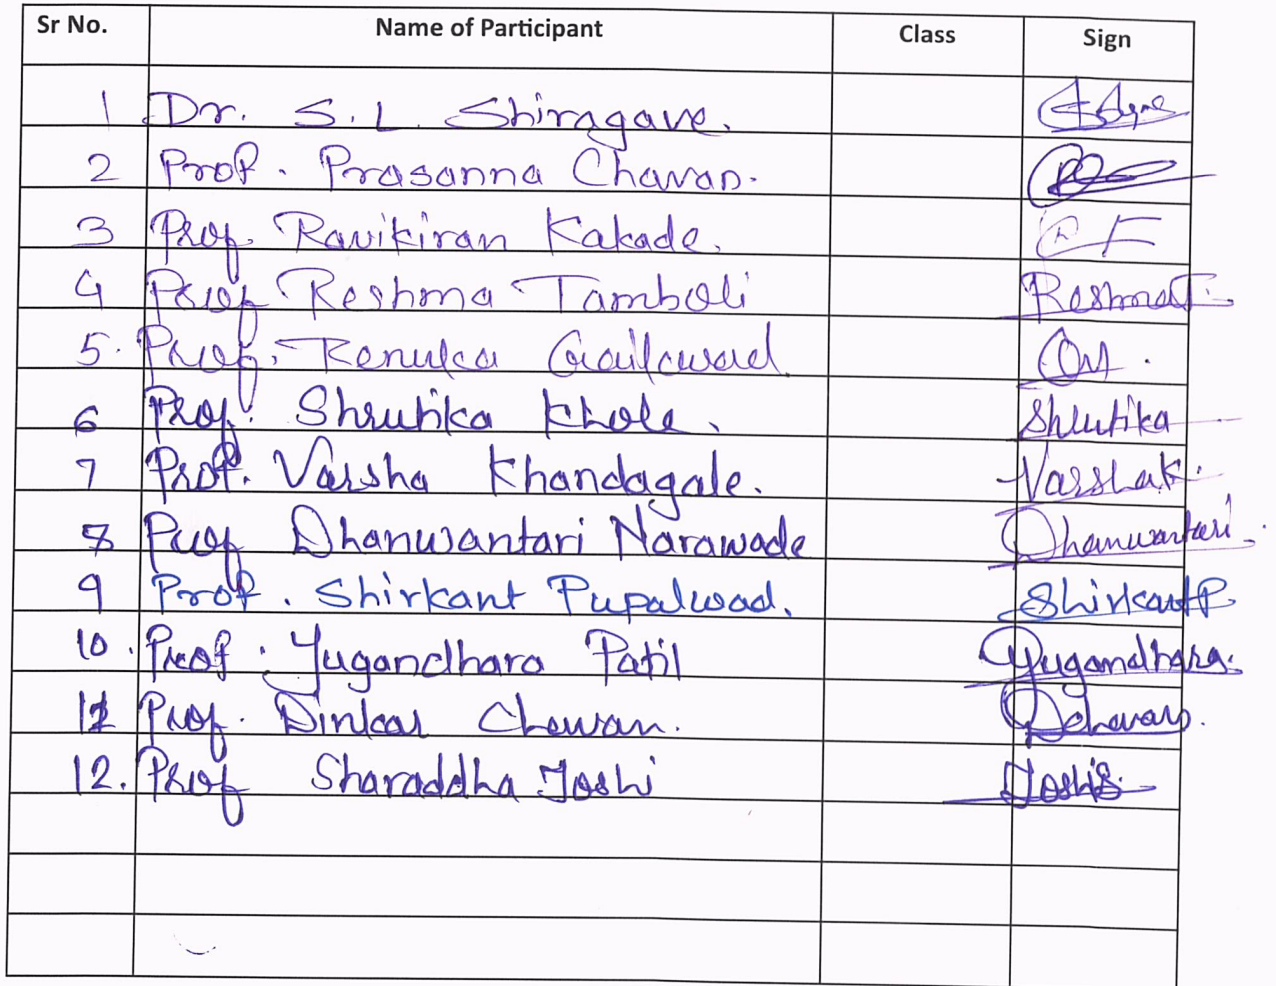 Sr No. Name of Participant Class Sign
1 Dr. S. L. Shiragave.
2 Prof. Prasanna Chavan.
3 Prof. Ravikiran Kakade.
4 Prof Reshma Tamboli ReshmaT.
5. Prof. Renuka Gaikwad.
6 Prof. Shrutika Khole. Shrutika
7 Prof. Varsha Khandagale. VarshaK.
8 Prof Dhanwantari Narawade Dhanwantari.
9 Prof. Shirkant Pupalwad. ShirkantP
10. Prof. Yugandhara Patil Yugandhara.
11 Prof. Dinkar Chawan. Dchavan.
12. Prof Sharaddha Joshi JoshiS.